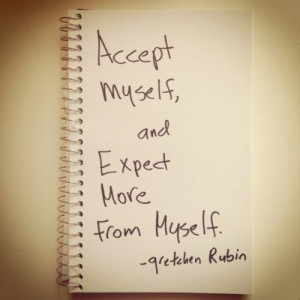 Accept
Myself,
and
Expect
More
From Myself.
-gretchen Rubin